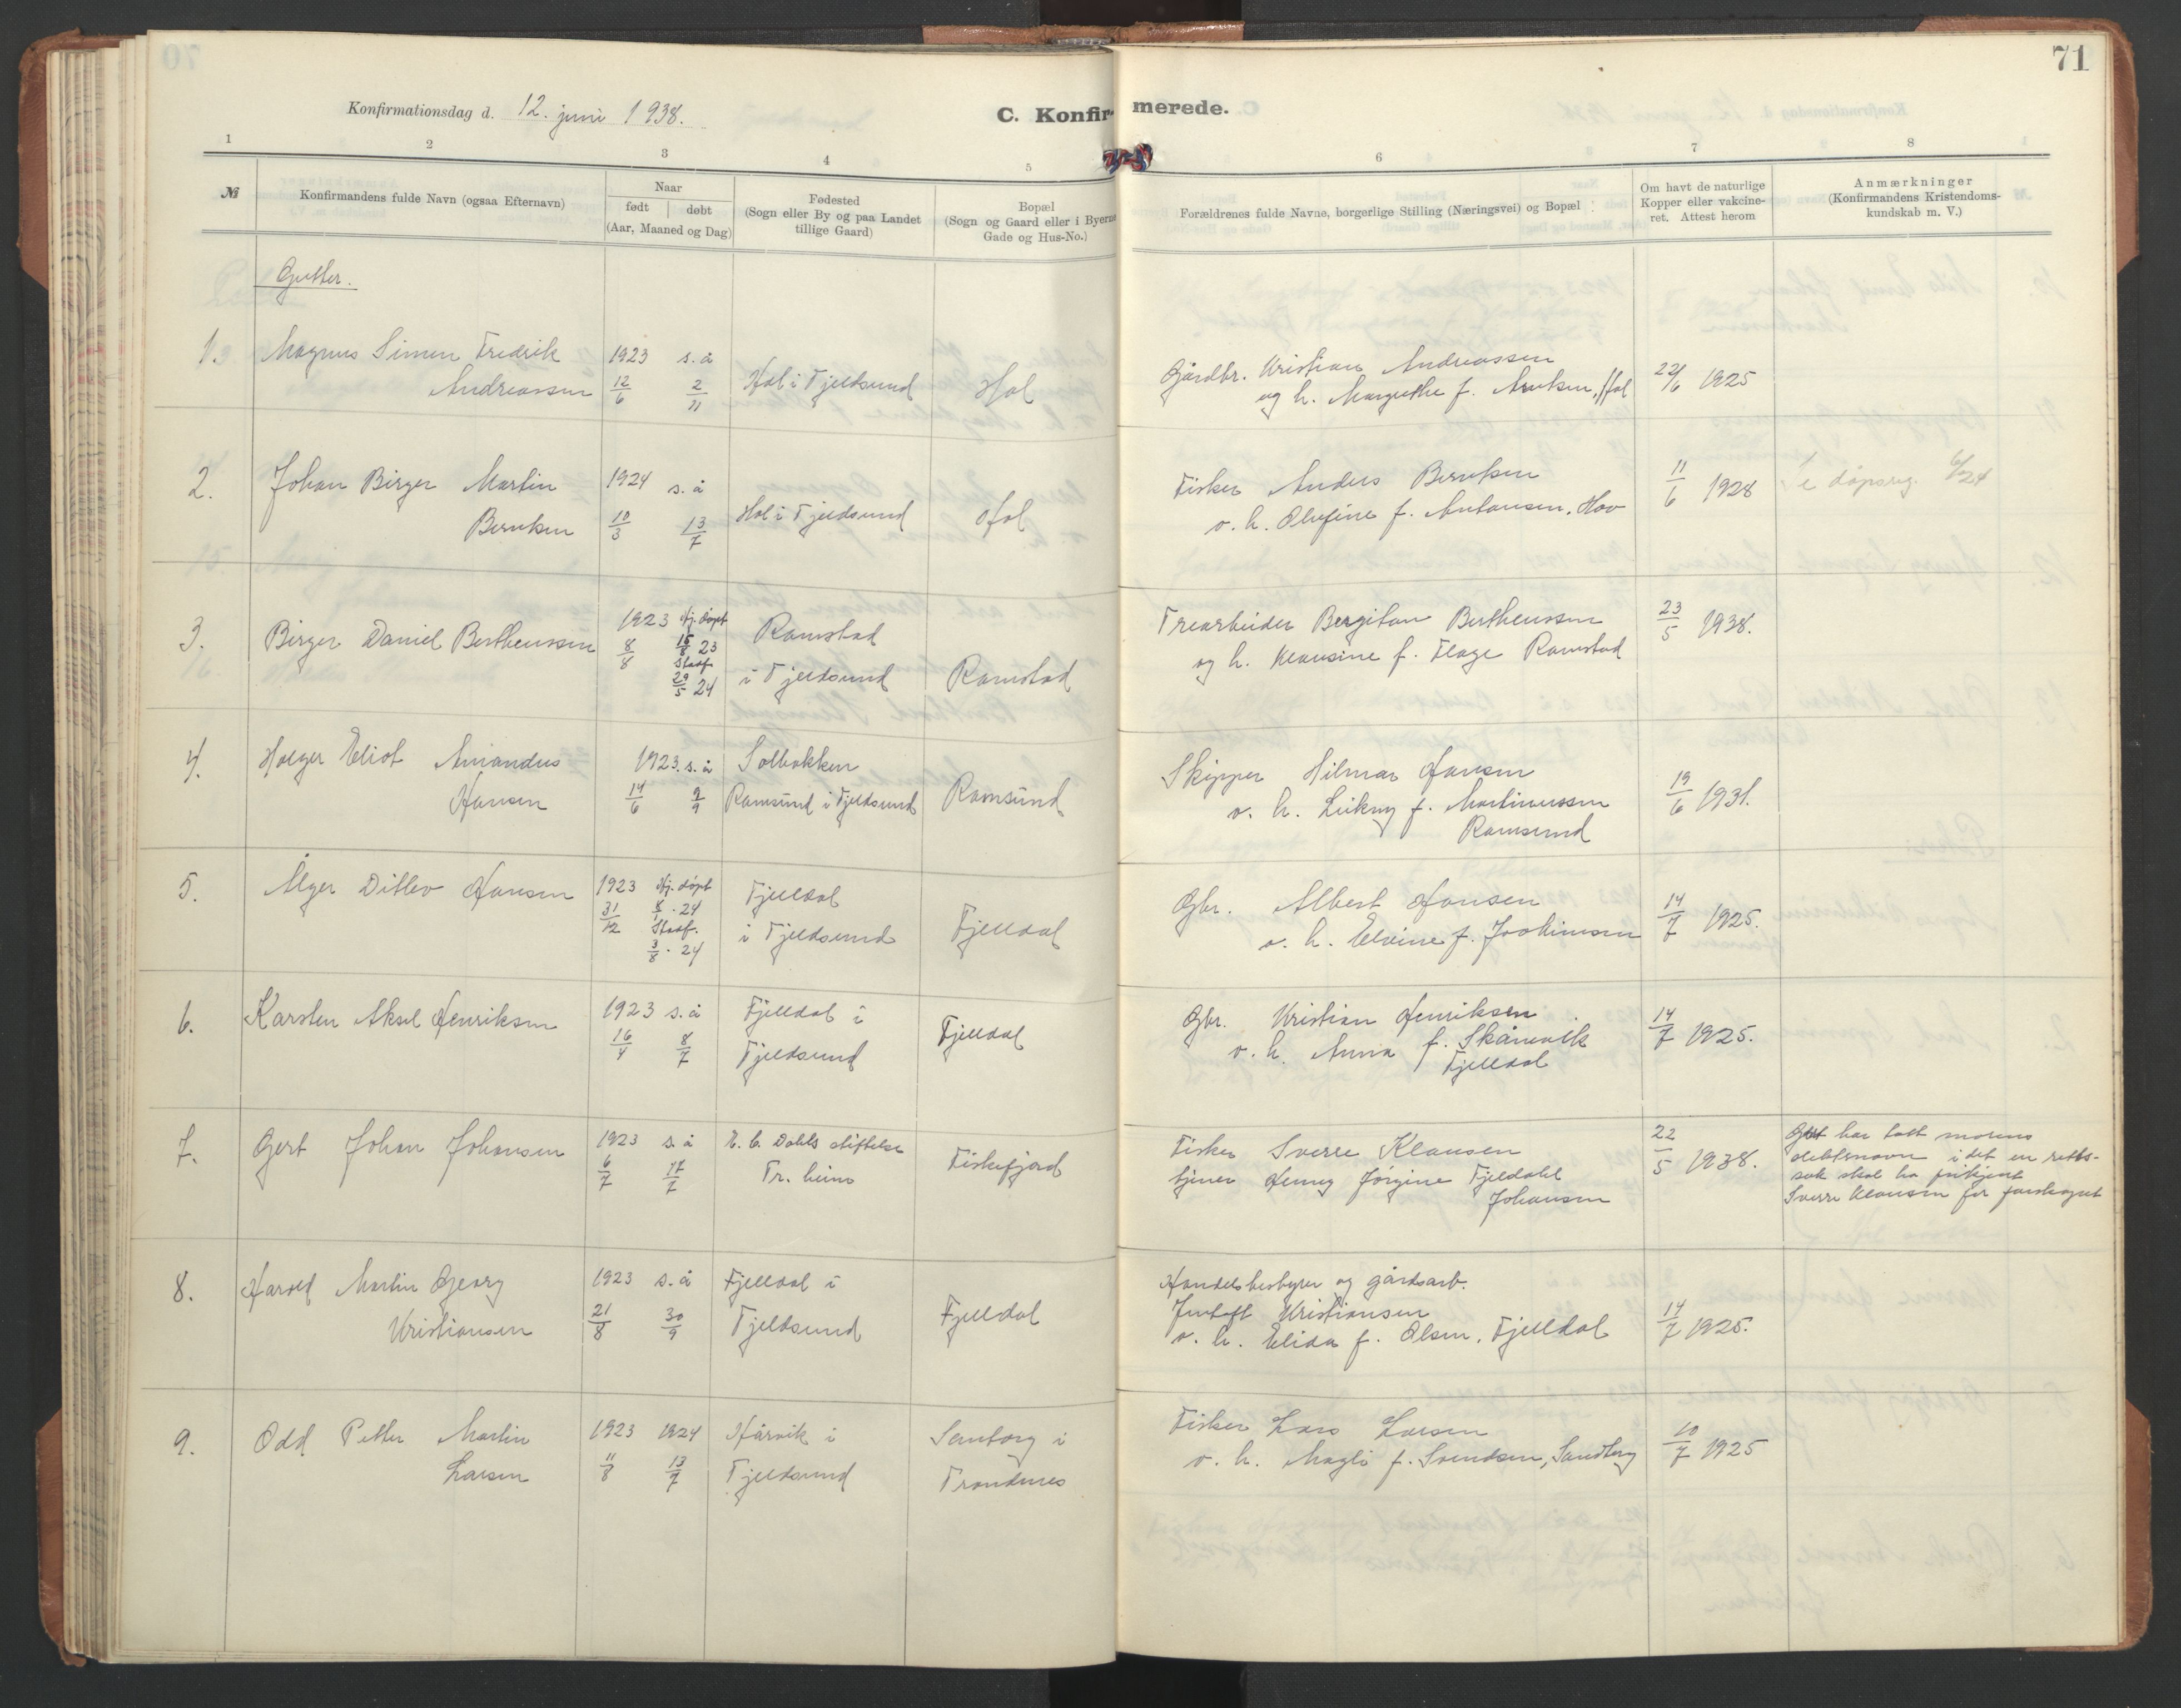 71
Konfirmationsdag d. 12. juni 1938.
C. Konfirmerede.
1 2 3 4 5 6 7 8
№
Konfirmandens fulde Navn (ogsaa Efternavn)
Naar
født | døbt
(Aar, Maaned og Dag)
Fødested
(Sogn eller By og paa Landet
tillige Gaard)
Bopæl
(Sogn og Gaard eller i Byerne
Gade og Hus-No.)
Forældrenes fulde Navne, borgerlige Stilling (Næringsvei) og Bopæl
Om havt de naturlige
Kopper eller vakcine-
ret. Attest herom
Anmærkninger
(Konfirmandens Kristendoms-
kundskab m. V.)
Gutter.
1. Magnus Simon Fredrik
Andreassen
1923 s. å
12/6 2/11
Hol i Tjeldsund
Hol
Gårdbr. Kristian Andreassen
og h. Margrethe f. Hol
22/6 1925
2. Johan Birger Martin
Berntsen
1924 s. å
10/3 13/7
Hol i Tjeldsund
Hol
Fisker Anders Berntsen
o. h. Olufine f. Antonsen. Hov
11/6 1928
e døpsreg. 6/24
3. Birger Daniel Bertheussen
1923 Hj. døpt
8/8 15/8 23
Stadf.
29/5 24
Ramstad
i Tjeldsund
Ramstad
Trearbeider Bergitan Bertheussen
og h. Klausine f. Flage Ramstad
23/5 1938.
4. Holger Eliot Amandus
Hansen
1923. s. å
14/6 9/9
Solbakken
Ramsund i Tjeldsund
Ramsund
Skipper Hilmar Hansen
o. h. f. Martinussen
Ramsund
19/6 1931.
5. Alger Ditlev Hansen
1923 Hj. døpt
31/12 8/1 · 24
Stadf.
3/8 · 24
Fjelldal
i Tjeldsund
Fjelldal
Gbr. Albert Hansen
o. h. Elvine f. Joakimsen
14/7 1925.
6. Karsten Aksel Henriksen
1923 s. å
16/4 8/7
Fjelldal i
Tjeldsund
Fjelldal
Gbr. Kristian Henriksen
o. h. Anna f. Skånvik
Fjelldal
14/7 1925.
7. Gert Johan Johansen
1923 s. å
6/7 17/7
E. C. Dahls stiftelse
Tr. heim
Fiskefjord
Fisker Sverre Klausen
tjener Henny Jørgine Fjelldahl
Johansen
22/5 1938.
Gert har tatt morens
slektsnavn idet en retts-
sak skal ha frikjent
Sverre Klausen for farskapet
8. Harold Martin Georg
Kristiansen
1923 s. å
21/8 30/9
Fjelldal i
Tjeldsund
Fjelldal
Handelsbestyrer og gårdsarb.
Jentoft Kristiansen
o. h. Elida f. Olsen. Fjelldal
14/7 1925.
9. Odd Petter Martin
Larsen
1923 1924
11/8 13/7
Hårvik i
Tjeldsund
Sandtorg i
Trondenes
Fisker Lars Larsen
o. h. Magli f. Svendsen, Sandtorg
10/7 1925